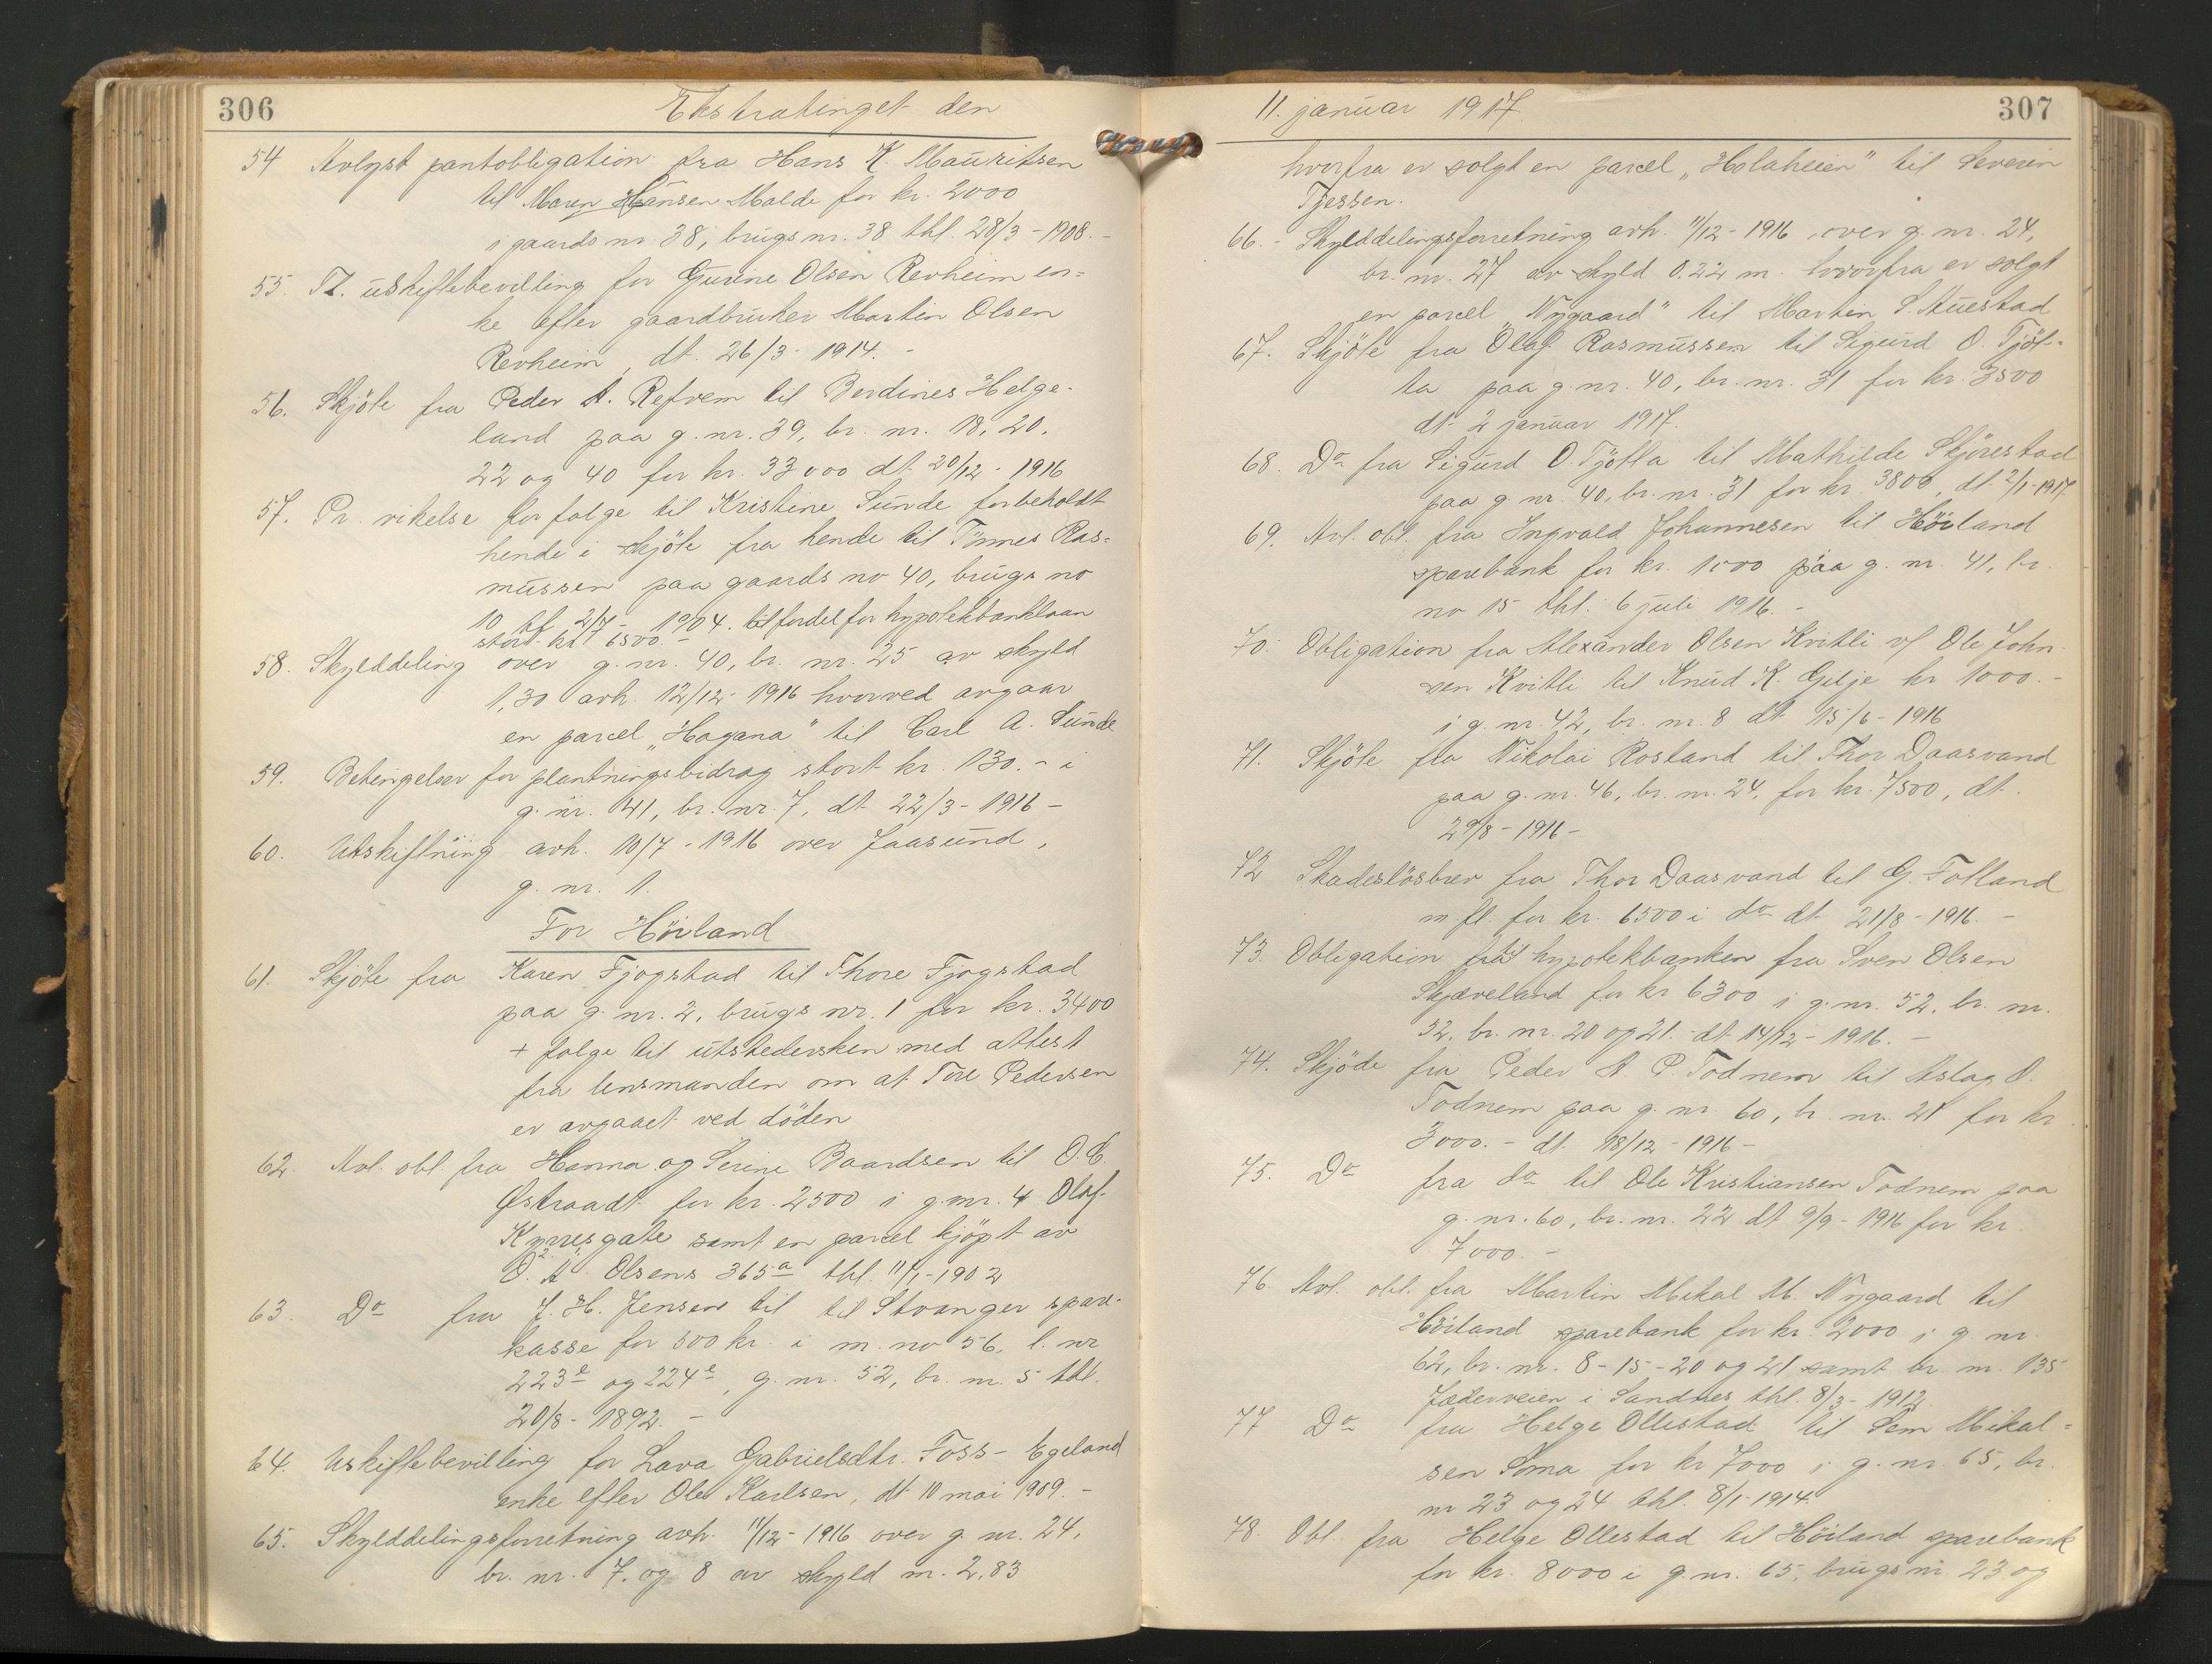 306
Ekstratinget den
54 Avlyst pantobligation fra Hans K. Mauritsen
til Maren Hansen Malde for kr. 2000
i gaards nr. 38, brugs nr. 38 thl. 28/3 - 1908. -
55. Tl. uskiftebevilling for Gurine Olsen Revheim en=
ke efter gaardbruker Martin Olsen
Revheim, dt. 26/3 - 1914. -
56. Skjöte fra Peder A. Refvem til Berdines Helge-
land paa g. nr. 39, br. nr. 18, 20,
22 og 40 for kr. 33000 dt 20/12 - 1916
57. Pr. vikelse for folge til Kristine Sunde forbeholdt
hende i skjöte fra hende til Tönnes Ras=
mussen paa gaards no 40, brugs no
10 tl 2/7 - 1904. til fordel for hypotekbanklaan
stort kr 6500. -
58. Skylddeling over g. nr. 40, br. nr. 25 av skyld
1,30 avh. 12/12 - 1916 hvorved avgaar
en parcel „Hagana" til Carl A. Sunde
59. Betingelser for plantningsbidrag stort kr. 130. - i
g. nr. 41, br. nr. 7, dt 22/3 - 1916 -
60. Utskiftning avh. 10/7 - 1916 over Jaasund,
g. nr. 1.
For Höiland
61. Skjöte fra Karen Fjogstad til Thore Fjogstad
paa g. nr. 2, brugs nr. 1 for kr. 3400
+ folge til utstedersken med attest
fra lensmanden om at Tore Pedersen
er avgaaet ved döden
62. Avl. obl. fra Hanna og Serine Baardsen til O. C.
Østraadt for kr. 2500 i g. nr. 4 Olaf
Kyrresgate samt en parcel kjöpt av
O. A. Olsens 365a thl. 11/1 - 1902
63. Do fra J. H. Jensen til til Stvanger spare-
kasse for 500 kr. i m. no 56, l. nr
223e og 224e, g. nr. 52, br. nr. 5 thl.
20/8 - 1892. -
64. Uskiftebevilling for Lava Gabrielsdtr. Foss-Egeland
enke efter Ole Karlsen, dt 10 mai 1909. -
65. Skylddelingsforretning avh. 11/12 - 1916 over g. nr. 24,
br. nr. 7 og 8 av skyld m. 2,83
11. januar 1917.
307
hvorfra er solgt en parcel „Holaheien" til Severin
Tjessen.
66. - Skylddelingsforretning avh. 11/12 - 1916 over g. nr. 24,
br. nr. 27 av skyld 0.22 m. hvorfra er solgt
en parcel „Nygaard" til Martin S. Auestad
67. Skjöte fra Olaf Rasmussen til Sigurd O. Tjöt-
ta paa g. nr. 40, br. nr. 31 for kr. 3500
dt 2 januar 1917.
68. Do fra Sigurd O. Tjötta til Mathilde Skjörestad
paa g. nr. 40, br. nr. 31 for kr. 3800, dt 2/1 - 1917.
69. Avl. obl. fra Ingvald Johannesen til Höiland
sparebank for kr. 1000 paa g. nr. 41, br.
no 15 thl. 6 juli 1916. -
70. Obligation fra Alexander Olsen Kvitli v/ Ole John-
sen Kvitli til Knud K. Gilje kr 1000. -
i g. nr. 42, br. nr. 8 dt 15/6 - 1916
71. Skjöte fra Nikolai Rosland til Thor Daasvand
paa g. nr. 46, br. nr. 24, for kr. 7500, dt.
29/8 - 1916 -
72 Skadeslösbrev fra Thor Daasvand til G. Folland
m. fl. for kr. 6500 i do dt 21/8 - 1916. -
73. Obligation til hypotekbanken fra Sven Olsen
Skjæveland for kr 6300 i g. nr. 52, br. nr.
52, br. nr. 20 og 21. dt 14/12 - 1916. -
74. Skjöde fra Peder A. P. Todnem til Aslag O.
Todnem paa g. nr 60, br. nr. 21 for kr
3000. - dt. 18/12 - 1916 -
75. Do fra do til Ole Kristiansen Todnem paa
g. nr. 60, br. nr. 22 dt 9/9 - 1916 for kr.
7000. -
76. Avl. obl. fra Martin Mikal M. Nygaard til
Höiland sparebank for kr. 2000 i g. nr.
62, br. nr. 8 - 15 - 20 og 21 samt br. nr. 135
Jæderveien i Sandnes thl. 8/3 - 1912.
77 Do fra Helge Ollestad til Sem Mikal=
sen Soma for kr 7000 i g. nr. 65, br.
nr 23 og 24 thl. 8/1 - 1914.
78. Obl. fra Helge Ollestad til Höiland sparebank
for kr. 8000 i g. nr. 65, brugs nr. 23 og